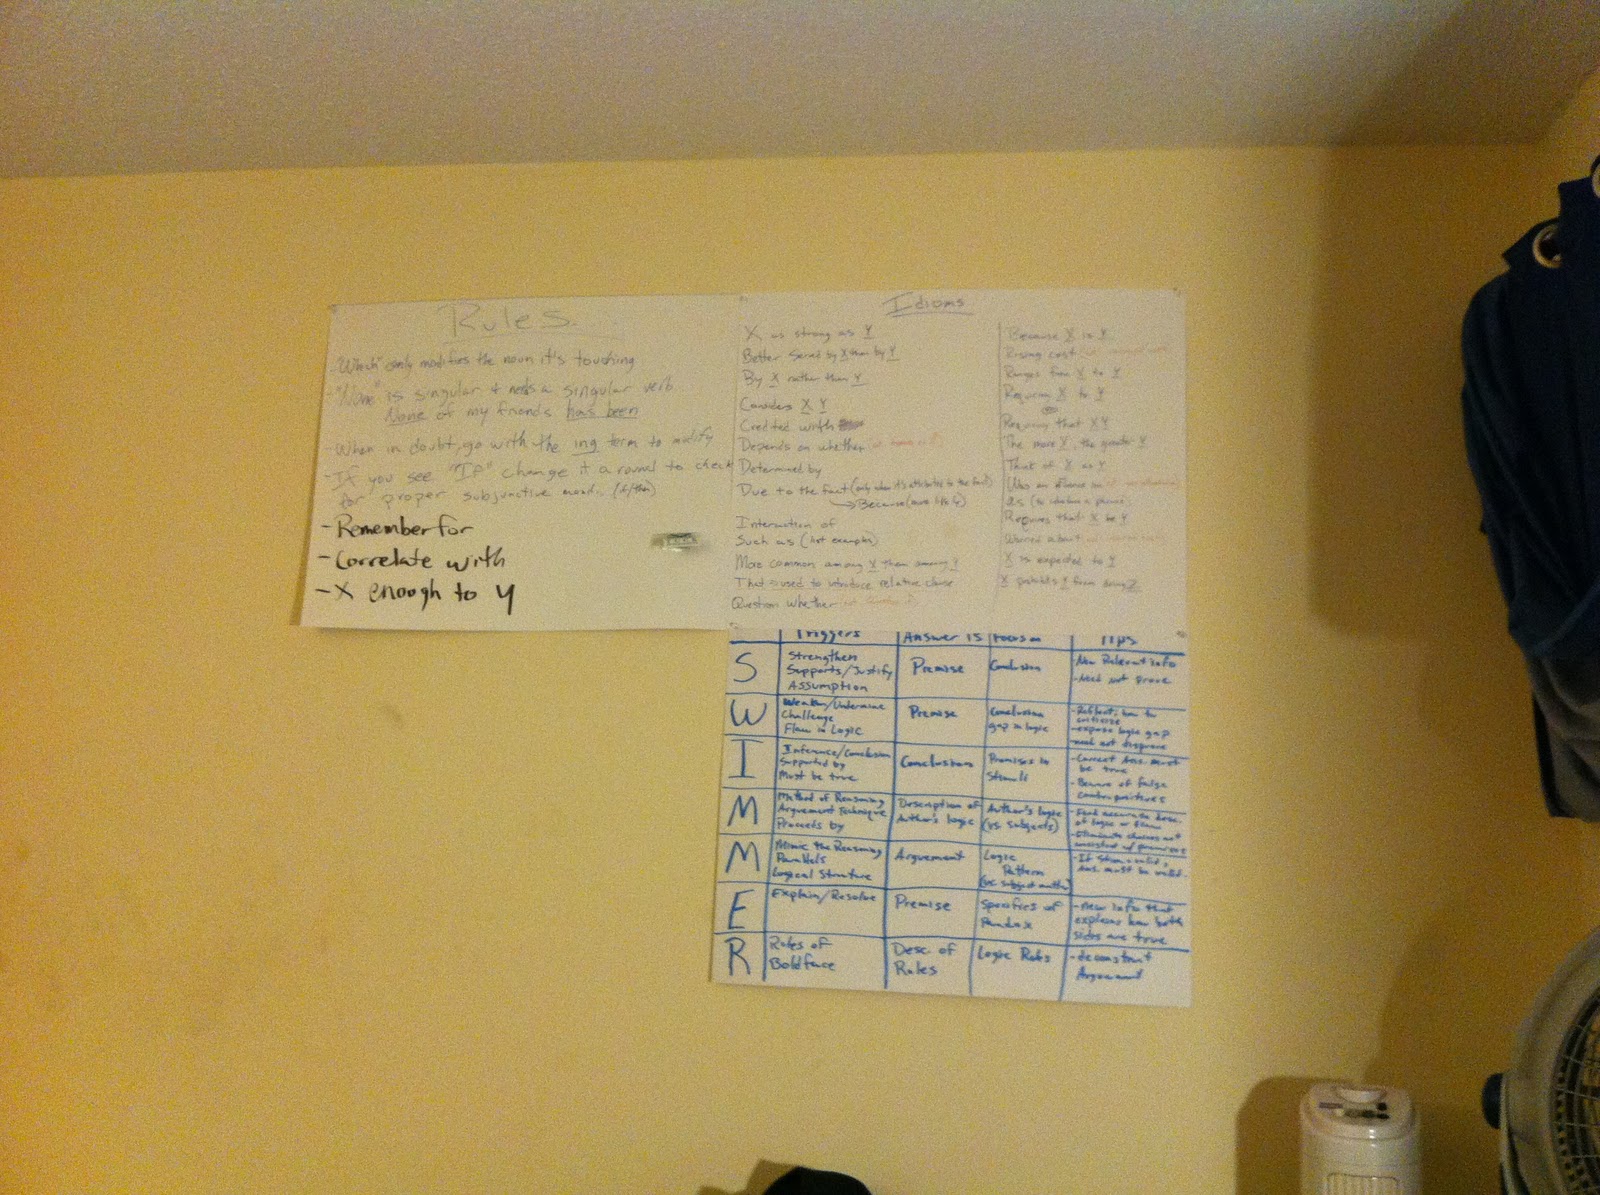 Rules
- "Which" only modifies the noun it's touching
- "None" is singular + needs a singular verb
None of my friends has been
- When in doubt, go with the ing term to modify
- If you see "IF" change it around to check
for proper subjunctive mood.. (if/then)
- Remember for
- Correlate with
- X enough to Y
Idioms
X as strong as Y
Better served by X than by Y
By X rather than Y
Considers X Y
Credited with
Depends on whether
Determined by
Due to the fact (only when it's attributed to the fact)
→ Because (more likely)
Interaction of
Such as (not examples)
More common among X than among Y
That is used to introduce relative clause
Question whether
Because X is Y
Rising cost
Ranges from X to Y
Requiring X to Y
Requiring that X Y
The more X, the greater Y
Think of X as Y
Was an
As
Requires that X be Y
Worried about
X is expected to Y
X prohibits Y from doing Z
Triggers Answer is Focus on Tips
S
Strengthen
Supports/Justify
Assumption
Premise
Conclusion
New Relevant info
- Need not prove
W
Weaken/Undermine
Challenge
Flaw in Logic
Premise
Conclusion
gap in logic
- expose logic gap
need not disprove
I
Inference/Conclusion
Supported by
Must be true
Conclusion
Premises in
Stimuli
- Correct Ans. must
be true
- Beware of false
contrapositives
M
Method of Reasoning
Arguement Technique
Proceeds by
Description of
Author's logic
Author's logic
(vs subjects)
- Find accurate desc.
of logic or flaw
- Eliminate choices not
M
Mimic the Reasoning
Parallels
Logical Structure
Arguement
Logic
Pattern
(vs. subject matter)
- If Stim = valid,
Ans. must be valid.
E
Explain/Resolve
Premise
Specifics of
Paradox
- New info that
explains how both
sides are true
R
Roles of
Boldface
Desc. of
Roles
Logic Roles
- deconstruct
Arguement